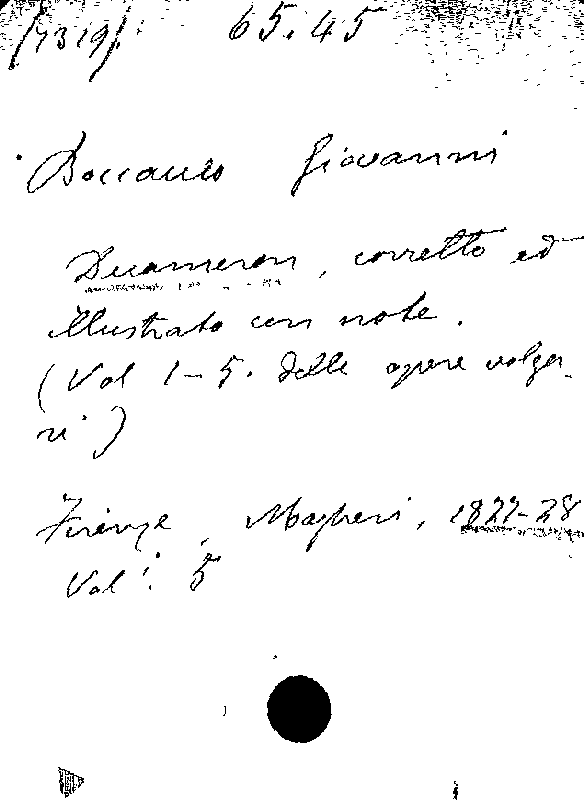 (7319). 65.45
Boccaccio Giovanni
Decameron, corretto ed
illustrato con note.
(Vol 1-5. delle opere volga-
ri)
Firenze, Magheri, 1827-28
Vol: 5